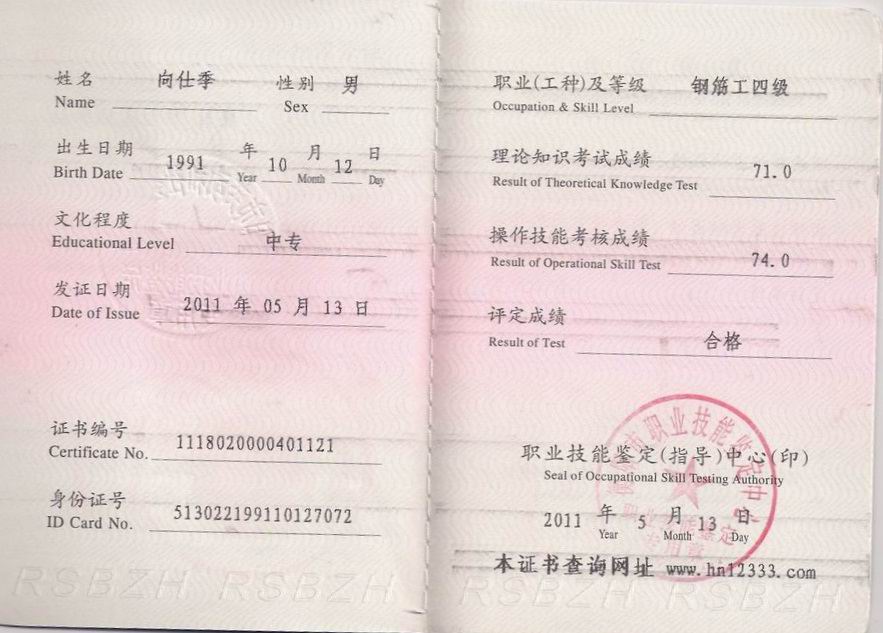 姓名 向仕季 性别 男
Name Sex
出生日期 1991 年 10 月 12 日
Birth Date Year Month Day
文化程度
Educational Level 中专
发证日期 2011 年 05 月 13 日
Date of Issue
证书编号 1118020000401121
Certificate No.
身份证号 513022199110127072
ID Card No.
RSBZH RSBZH
职业(工种)及等级 钢筋工四级
Occupation & Skill Level
理论知识考试成绩 71.0
Result of Theoretical Knowledge Test
操作技能考核成绩 74.0
Result of Operational Skill Test
评定成绩
Result of Test 合格
职业技能鉴定(指导)中心(印)
Seal of Occupational Skill Testing Authority
2011 年 5 月 13 日
Year Month Day
市职业技能鉴定中心
职业技能鉴定
专用章
本证书查询网址 www.hn12333.com
RSBZH RSBZH